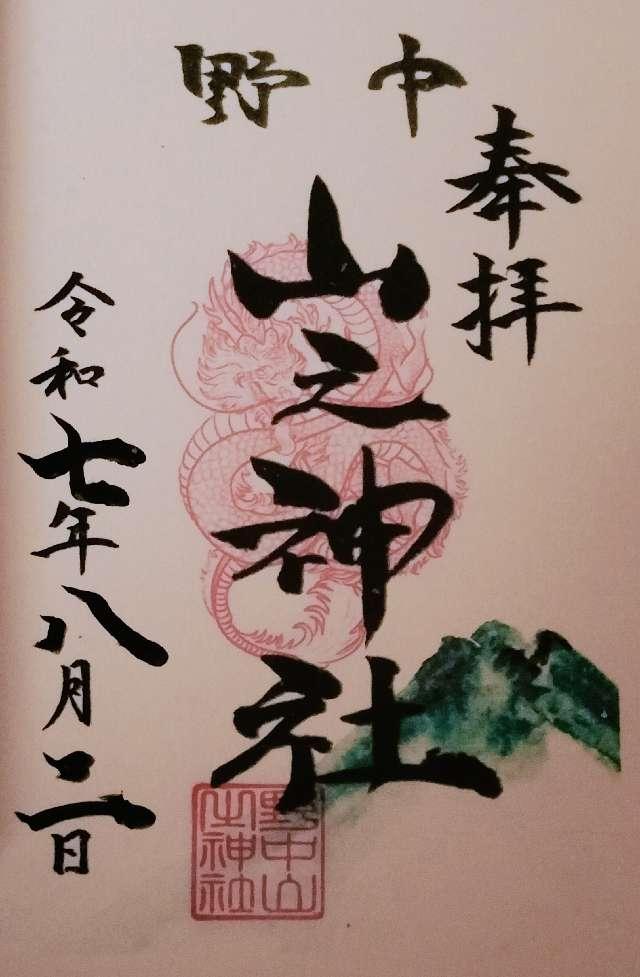 奉拝
野中
山之神社
令和七年八月二日
野中山
之神社